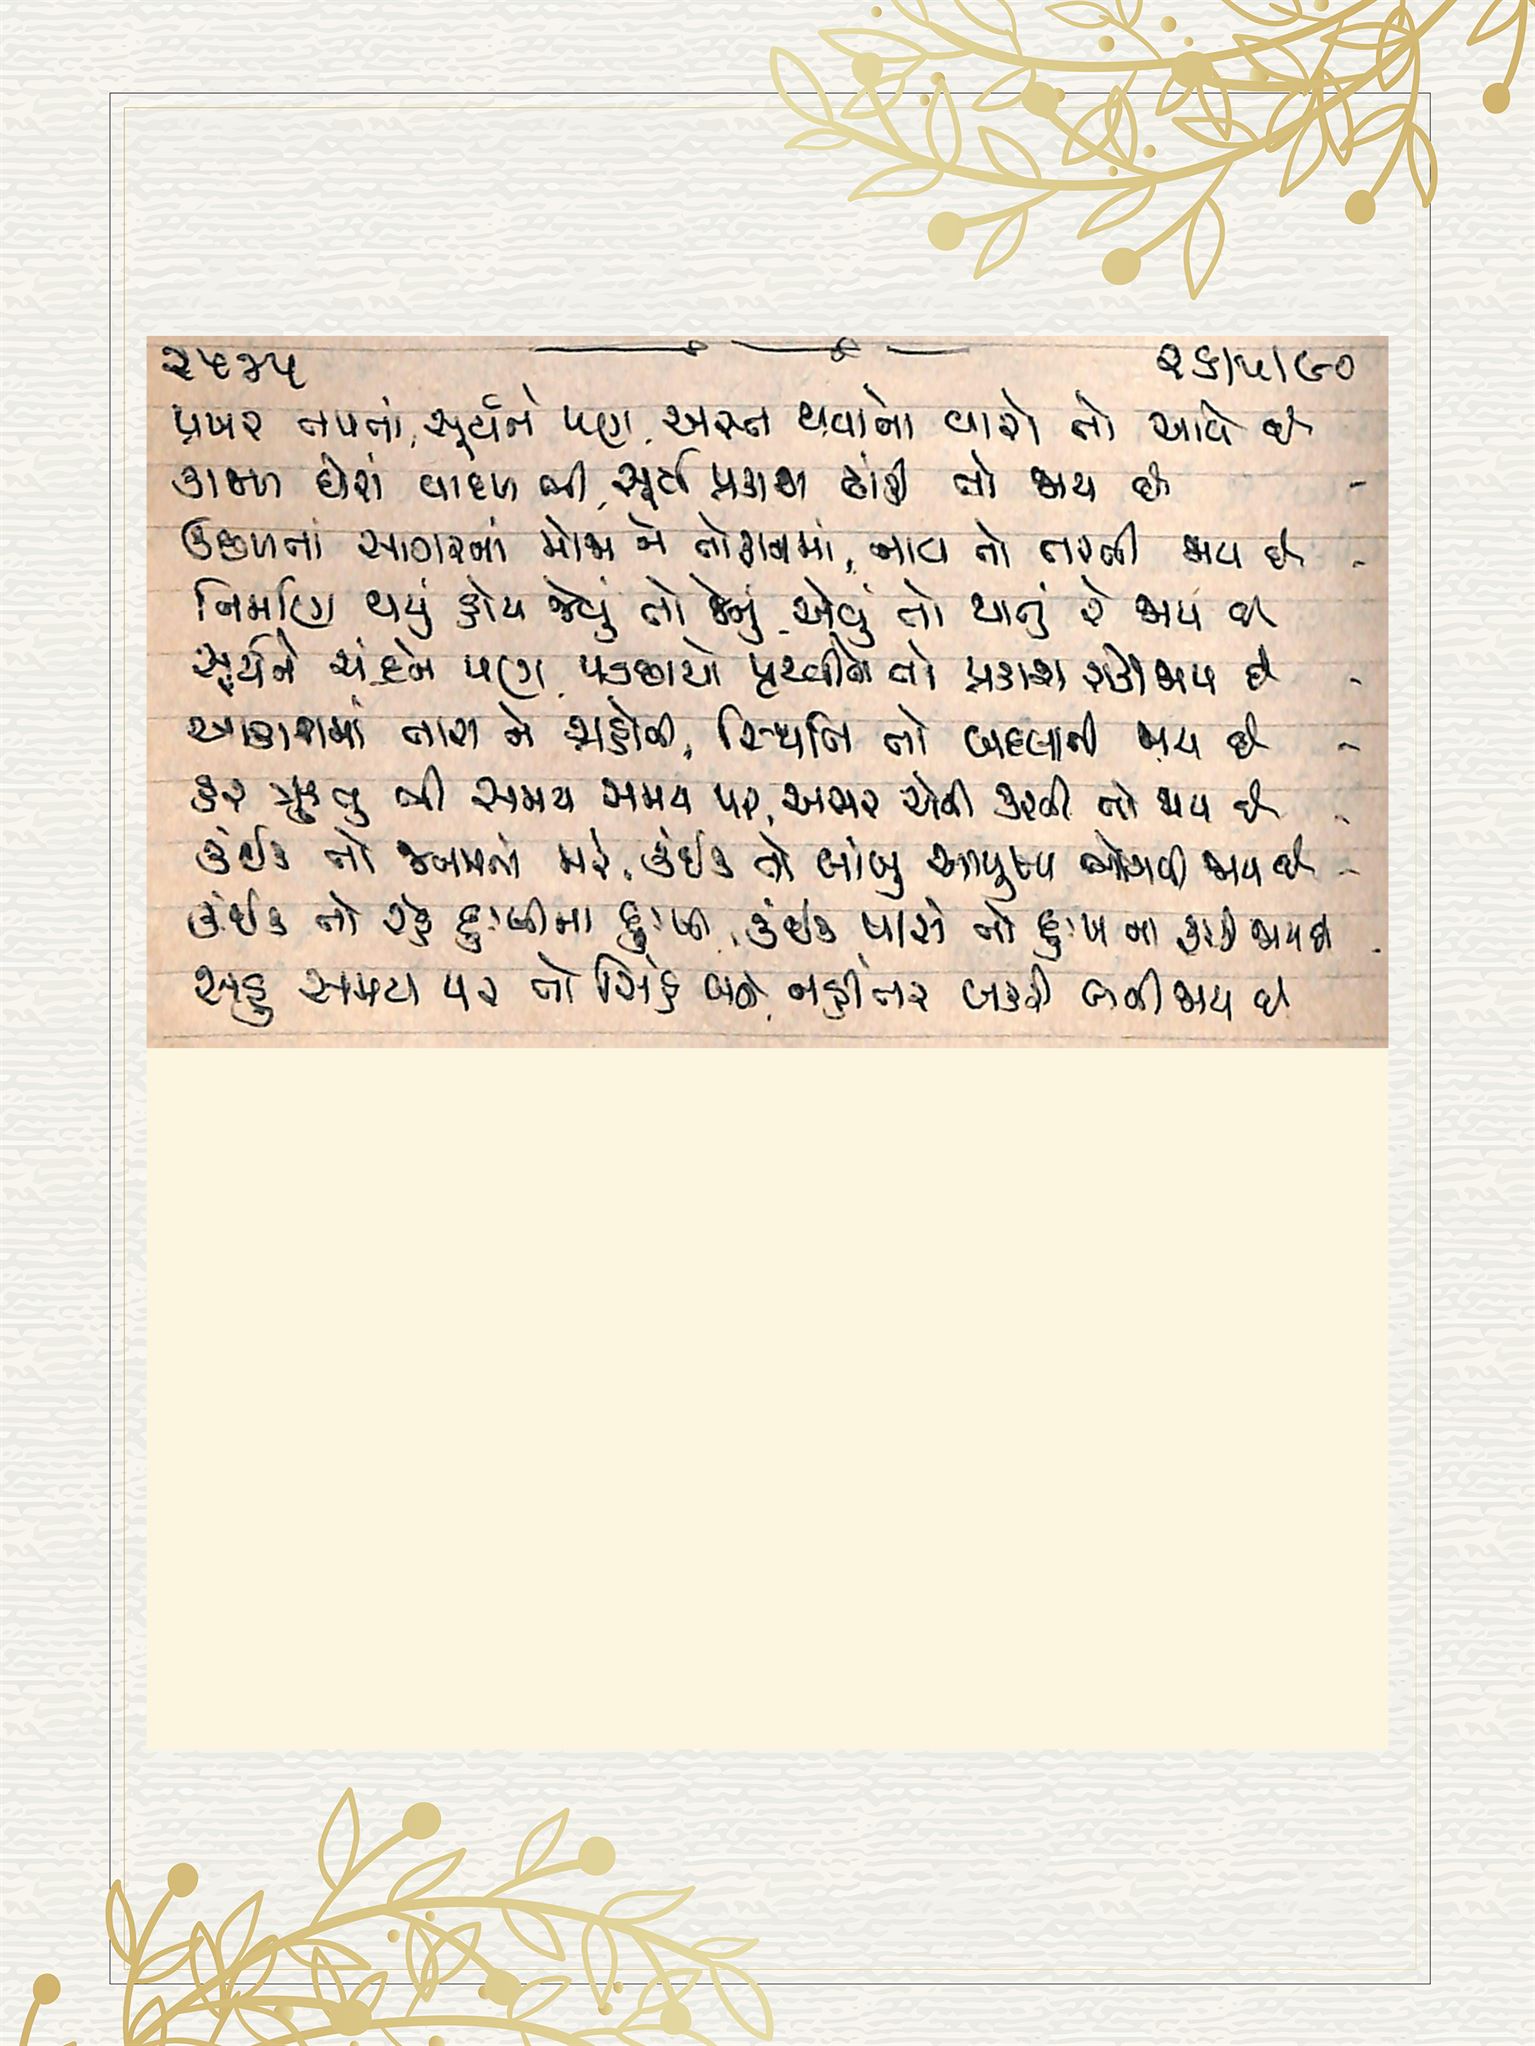 ૨૫૩૫ ૨૬/૫/૯૦
પ્રખર તપતાં, સૂર્યને પણ, અસ્ત થવાનો વારો તો આવે છે
કાજળ ઘેરાં વાદળ ભી, સૂર્ય પ્રકાશ ઢાંકી તો જાય છે -
ઉછળતાં સાગરનાં મોજા ને તોફાનમાં, નાવ તો તરતી જાય છે -
નિર્માણ થયું હોય જેવું તો જેનું, એવું તો થાતું રે જાય છે
સૂર્યને ચંદ્રને પણ, પડછાયો પૃથ્વીનો તો પ્રકાશ રોકી જાય છે -
આકાશમાં તારા ને ગ્રહોની, સ્થિતિ તો બદલાતી જાય છે -
હર ઋતુ ભી સમય સમય પર, અસર એની કરતી તો જાય છે -
કંઈક તો જનમતાં મરે, કંઈક તો લાંબુ આયુષ્ય ભોગવી જાય છે -
કંઈક તો રહે દુઃખીના દુઃખી, કંઈક પાસે તો દુઃખ ના ફરકી જાય છે -
સહુ સમય પર તો સિંહ બને, નહીંતર બકરી બની જાય છે